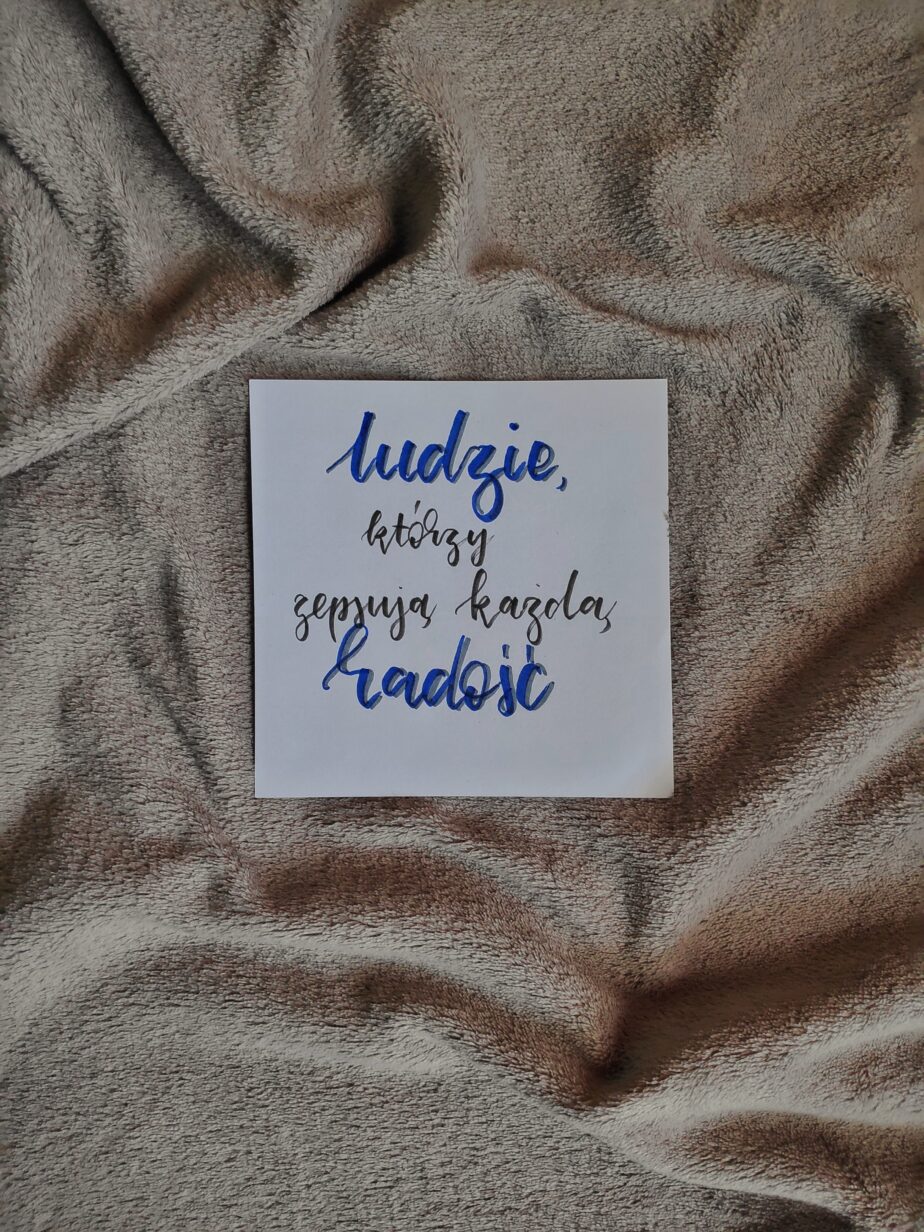 ludzie,
którzy
zepsują każdą
radość